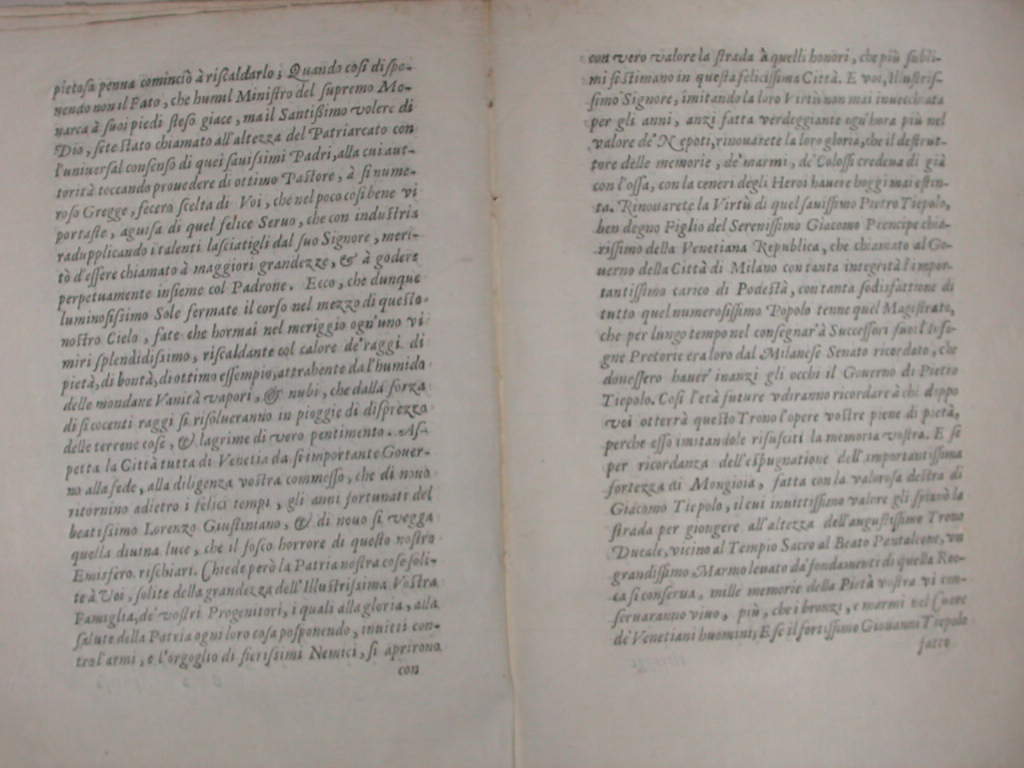 pietosa penna cominciò à riscaldarlo; Quando così dispo-
nendo non il Fato, che humil Ministro del supremo Mo-
narca à suoi piedi steso giace, ma il Santissimo volere di
Dio, sete stato chiamato all'altezza del Patriarcato con
l'uniuersal consenso di quei sauissimi Padri, alla cui aut-
torità toccando prouedere di ottimo Pastore, à sì nume-
roso Gregge, fecero scelta di Voi, che nel poco così bene vi
portaste, aguisa di quel felice Seruo, che con industria
radupplicando i talenti lasciatigli dal suo Signore, meri-
tò d'essere chiamato à maggiori grandezze, & à godere
perpetuamente insieme col Padrone. Ecco, che dunque
luminosissimo Sole fermate il corso nel mezzo di questo
nostro Cielo, fate che hormai nel meriggio ogn'uno vi
miri splendidissimo, riscaldante col calore de' raggi di
pietà, di bontà, di ottimo essempio, attrahente da l'humido
delle mondane Vanità vapori, & nubi, che dalla forza
di sì cocenti raggi si risolueranno in pioggie di disprezzo
delle terrene cose, & lagrime di vero pentimento. As-
petta la Città tutta di Venetia da sì importante Gouer-
no alla fede, alla diligenza vostra commesso, che di nouo
ritornino adietro i felici tempi, gli anni fortunati del
beatissimo Lorenzo Giustiniano, & di nouo si vegga
quella diuina luce, che il fosco horrore di questo nostro
Emisfero rischiari. Chiede però la Patria nostra cose soli-
te à Voi, solite della grandezza dell'Illustrissima Vostra
Famiglia, de' vostri Progenitori, i quali alla gloria, alla
salute della Patria ogni loro cosa posponendo, inuitti con-
tro l'armi, e l'orgoglio di fierissimi Nemici, si aprirono
con
con vero valore la strada à quelli honori, che più subli-
mi si stimano in questa felicissima Città. E voi, Illustris-
simo Signore, imitando la loro Virtù non mai inuecchiata
per gli anni, anzi fatta verdeggiante ogn'hora più nel
valore de' Nepoti, rinouarete la loro gloria, che il destrut-
tore delle memorie, de' marmi, de' Colossi credeua di già
con l'ossa, con la ceneri degli Heroi hauere hoggi mai estin-
ta. Rinouarete la Virtù di quel sauissimo Pietro Tiepolo,
ben degno Figlio del Serenissimo Giacomo Prencipe chia-
rissimo della Venetiana Republica, che chiamato al Go-
uerno della Città di Milano con tanta integrità l'impor-
tantissimo carico di Podestà, con tanta sodisfattione di
tutto quel numerosissimo Popolo tenne quel Magistrato,
che per lungo tempo nel consegnar' à Successori suoi l'inse-
gne Pretorie era loro dal Milanese Senato ricordato, che
douessero hauer' inanzi gli occhi il Gouerno di Pietro
Tiepolo. Così l'età future vdiranno ricordare à chi doppo
voi otterrà questo Trono l'opere vostre piene di pietà,
perche esso imitandole risusciti la memoria vostra. E se
per ricordanza dell'espugnatione dell'importantissima
fortezza di Mongioia, fatta con la valorosa destra di
Giacomo Tiepolo, il cui inuittissimo valore gli spianò la
strada per giongere all'altezza dell'augustissimo Trono
Ducale, vicino al Tempio Sacro al Beato Pantaleone, vn
grandissimo Marmo leuato da' fondamenti di quella Roc-
ca si conserua, mille memorie della Pietà vostra vi con-
seruaranno viuo, più, che i bronzi, e marmi nel Cuore
de' Venetiani huomini; E se il fortissimo Giouanni Tiepolo
fatto